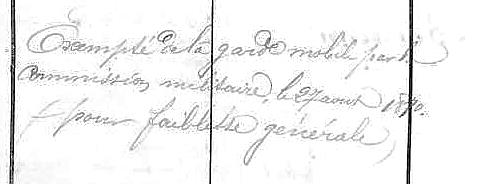 Exempté de la garde mobile par la
Commission militaire, le 27 aout 1870.
(pour faiblesse générale)